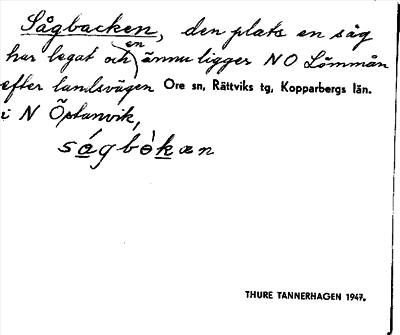 Sågbacken, den plats en såg
har legat och (en) ännu ligger NO Lömmån
efter landsvägen Ore sn, Rättviks tg, Kopparbergs län.
i N Östanvik,
ságbòkan
THURE TANNERHAGEN 1947.